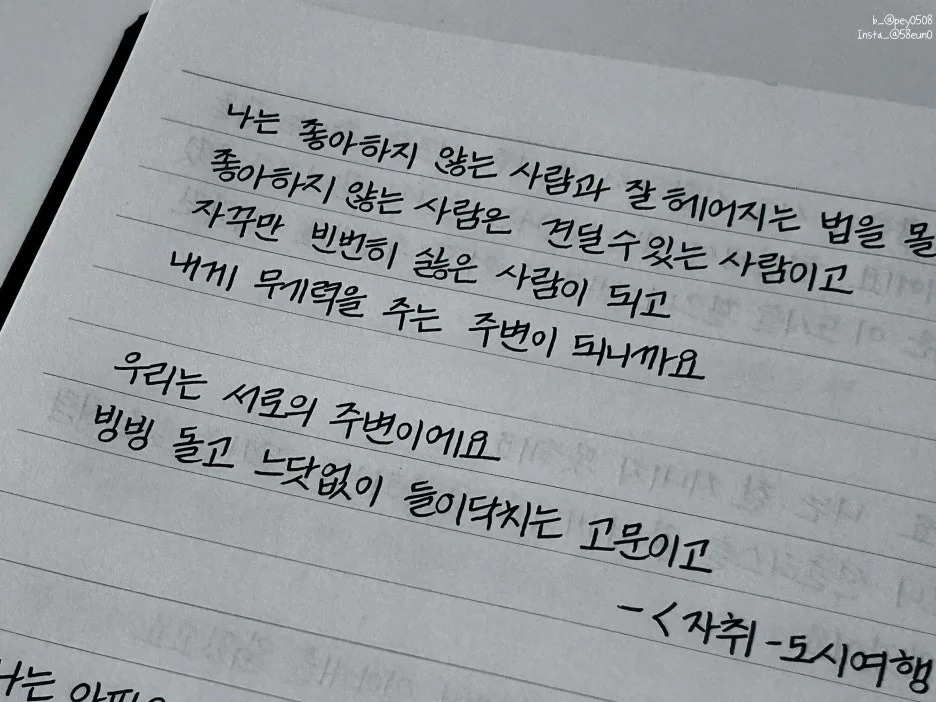 b_@pey0508
Insta_@58eun0
나는 좋아하지 않는 사람과 잘 헤어지는 법을 몰
좋아하지 않는 사람은 견딜수있는 사람이고
자꾸만 빈번히 싫은 사람이 되고
내게 무게력을 주는 주변이 되니까요
우리는 서로의 주변이에요
빙빙 돌고 느닷없이 들이닥치는 고문이고
-<자취-도시여행
나는